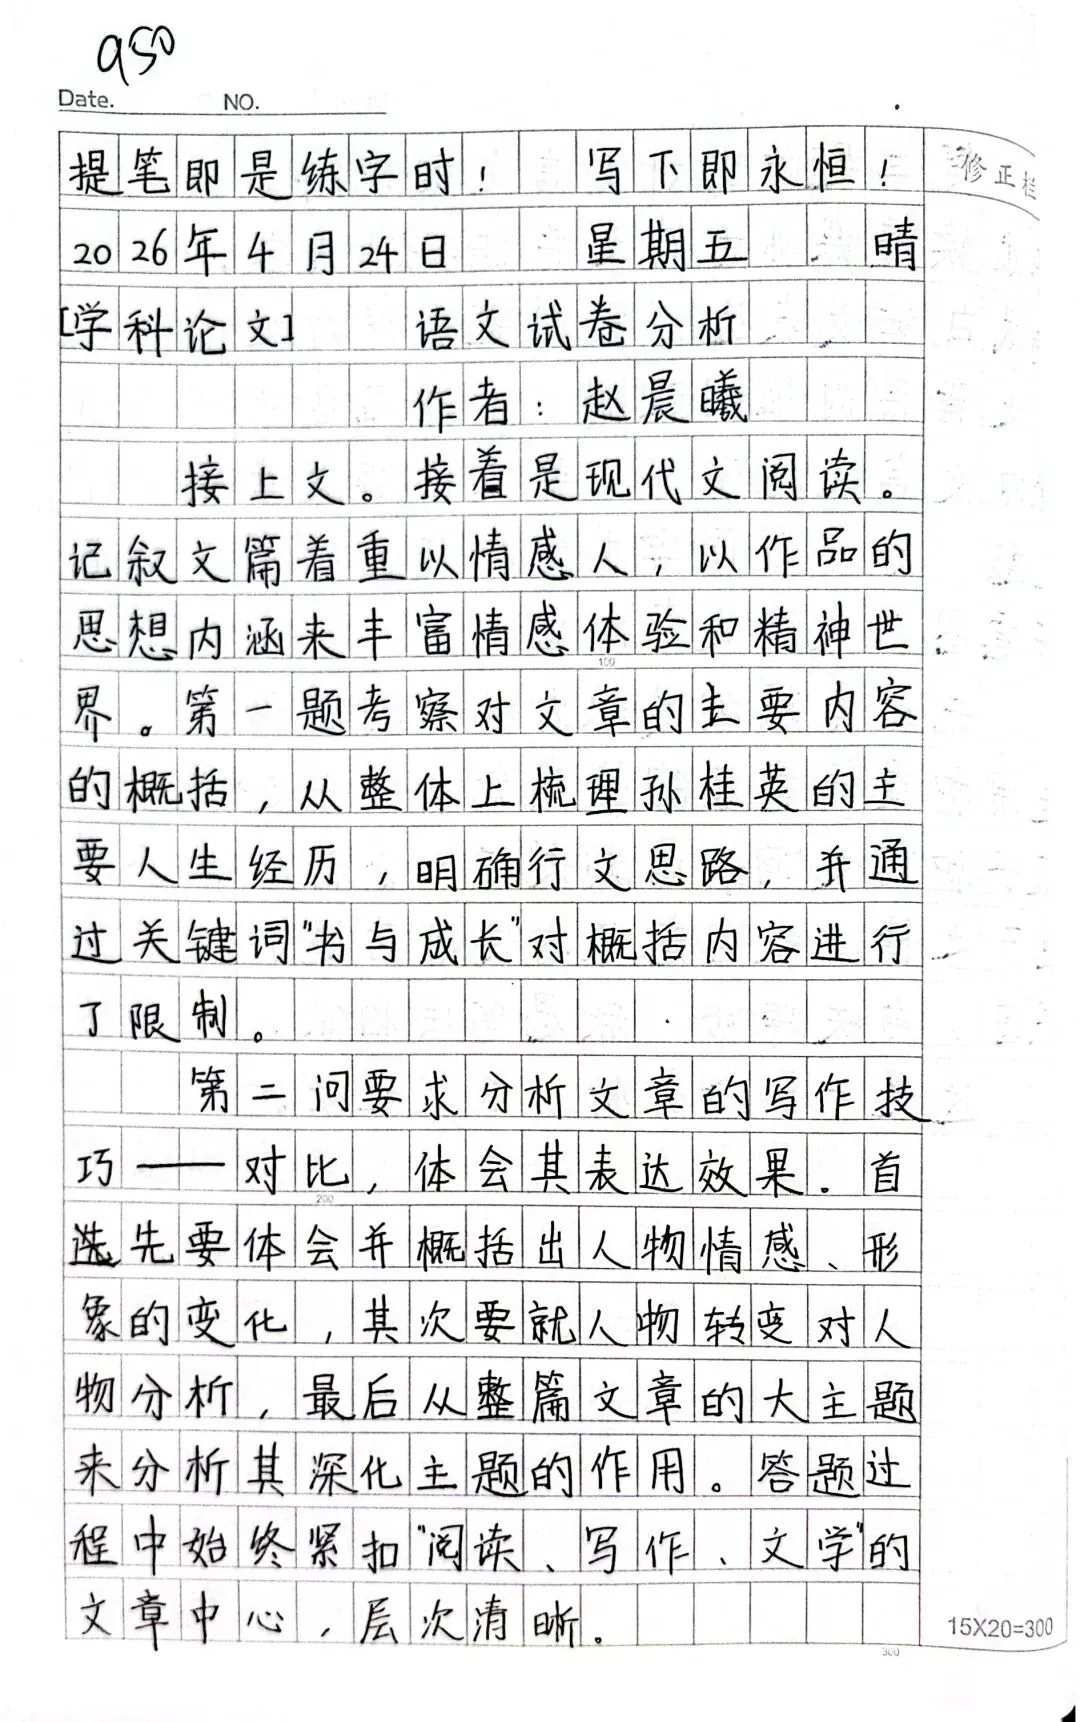 950
Date. NO.
提笔即是练字时! 写下即永恒!
修正栏
2026年4月24日 星期五 晴
[学科论文] 语文试卷分析
作者:赵晨曦
接上文。接着是现代文阅读。
记叙文篇着重以情感人,以作品的
思想内涵来丰富情感体验和精神世
100
界。第一题考察对文章的主要内容
的概括,从整体上梳理孙桂英的主
要人生经历,明确行文思路,并通
过关键词"书与成长"对概括内容进行
了限制。
第二问要求分析文章的写作技
巧——对比,体会其表达效果.首
200
先要体会并概括出人物情感、形
象的变化,其次要就人物转变对人
物分析,最后从整篇文章的大主题
来分析其深化主题的作用。答题过
程中始终紧扣"阅读、写作、文学"的
文章中心,层次清晰。
15X20=300
300